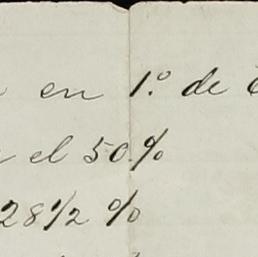 en 1.º de
el 50.%
28 1/2 %